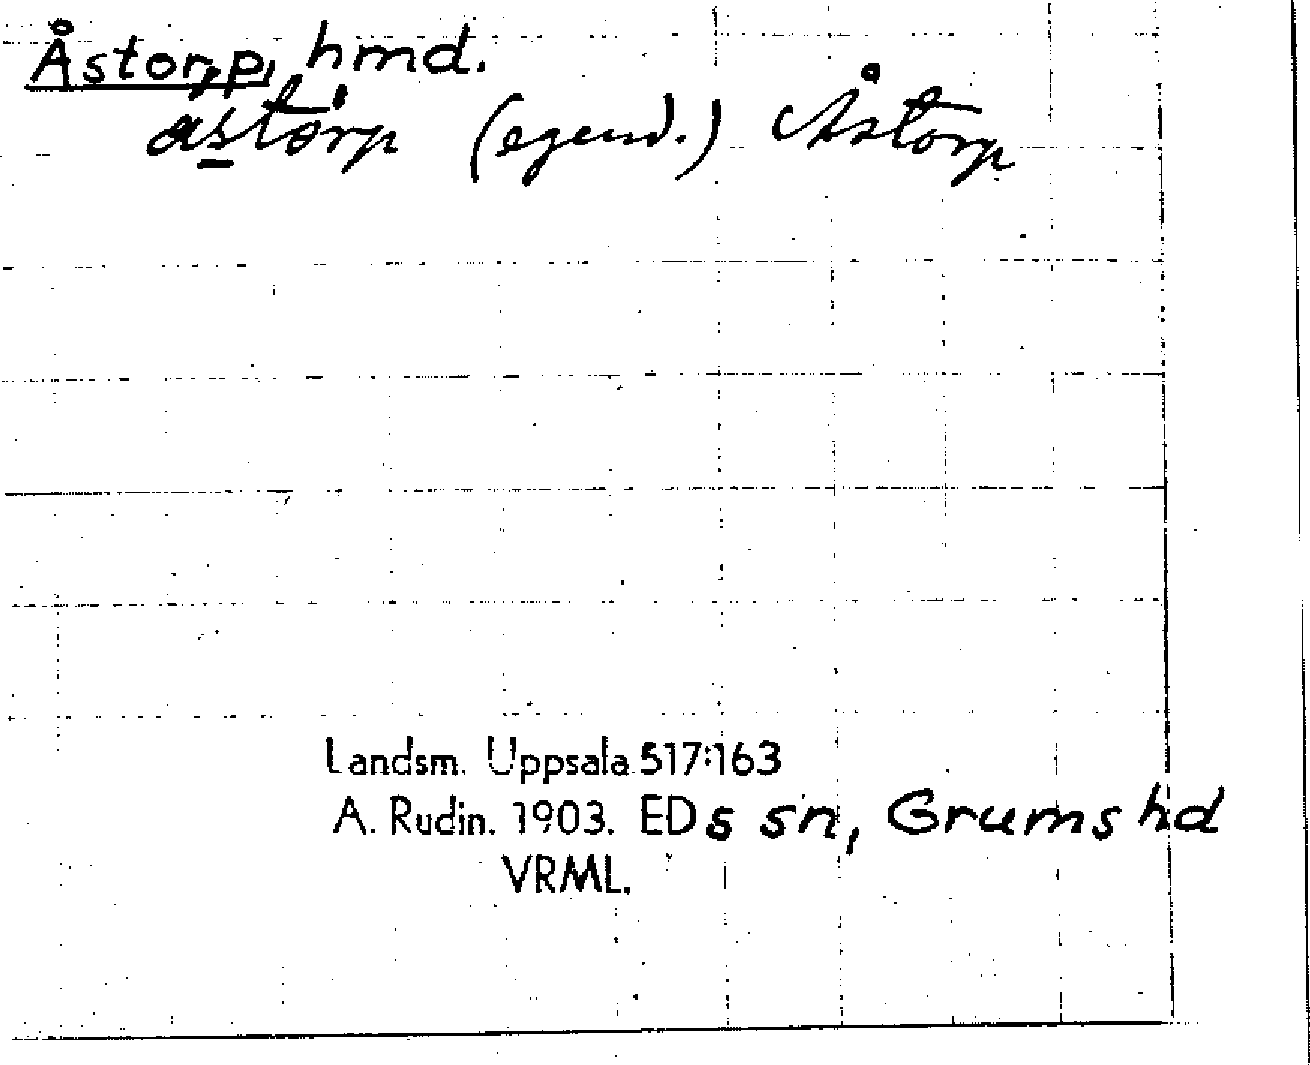 Åstorp, hmd.
åstórp (egend.) Åstorp
Landsm. Uppsala 517:163
A. Rudin. 1903. EDs sn, Grums hd
VRML.